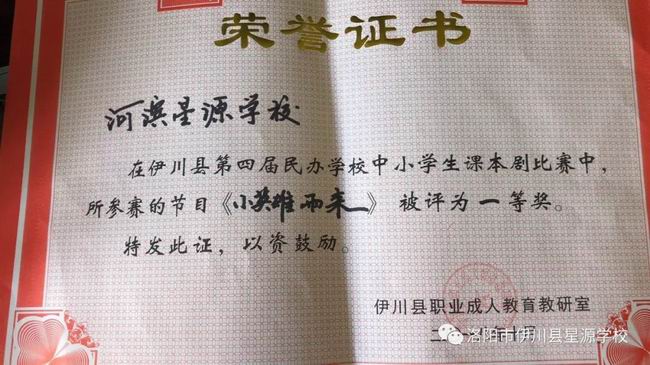 荣誉证书
河滨星源学校
在伊川县第四届民办学校中小学生课本剧比赛中，
所参赛的节目《小英雄雨来》被评为一等奖。
特发此证，以资鼓励。
伊川县职业成人教育教研室
二〇一
洛阳市伊川县星源学校